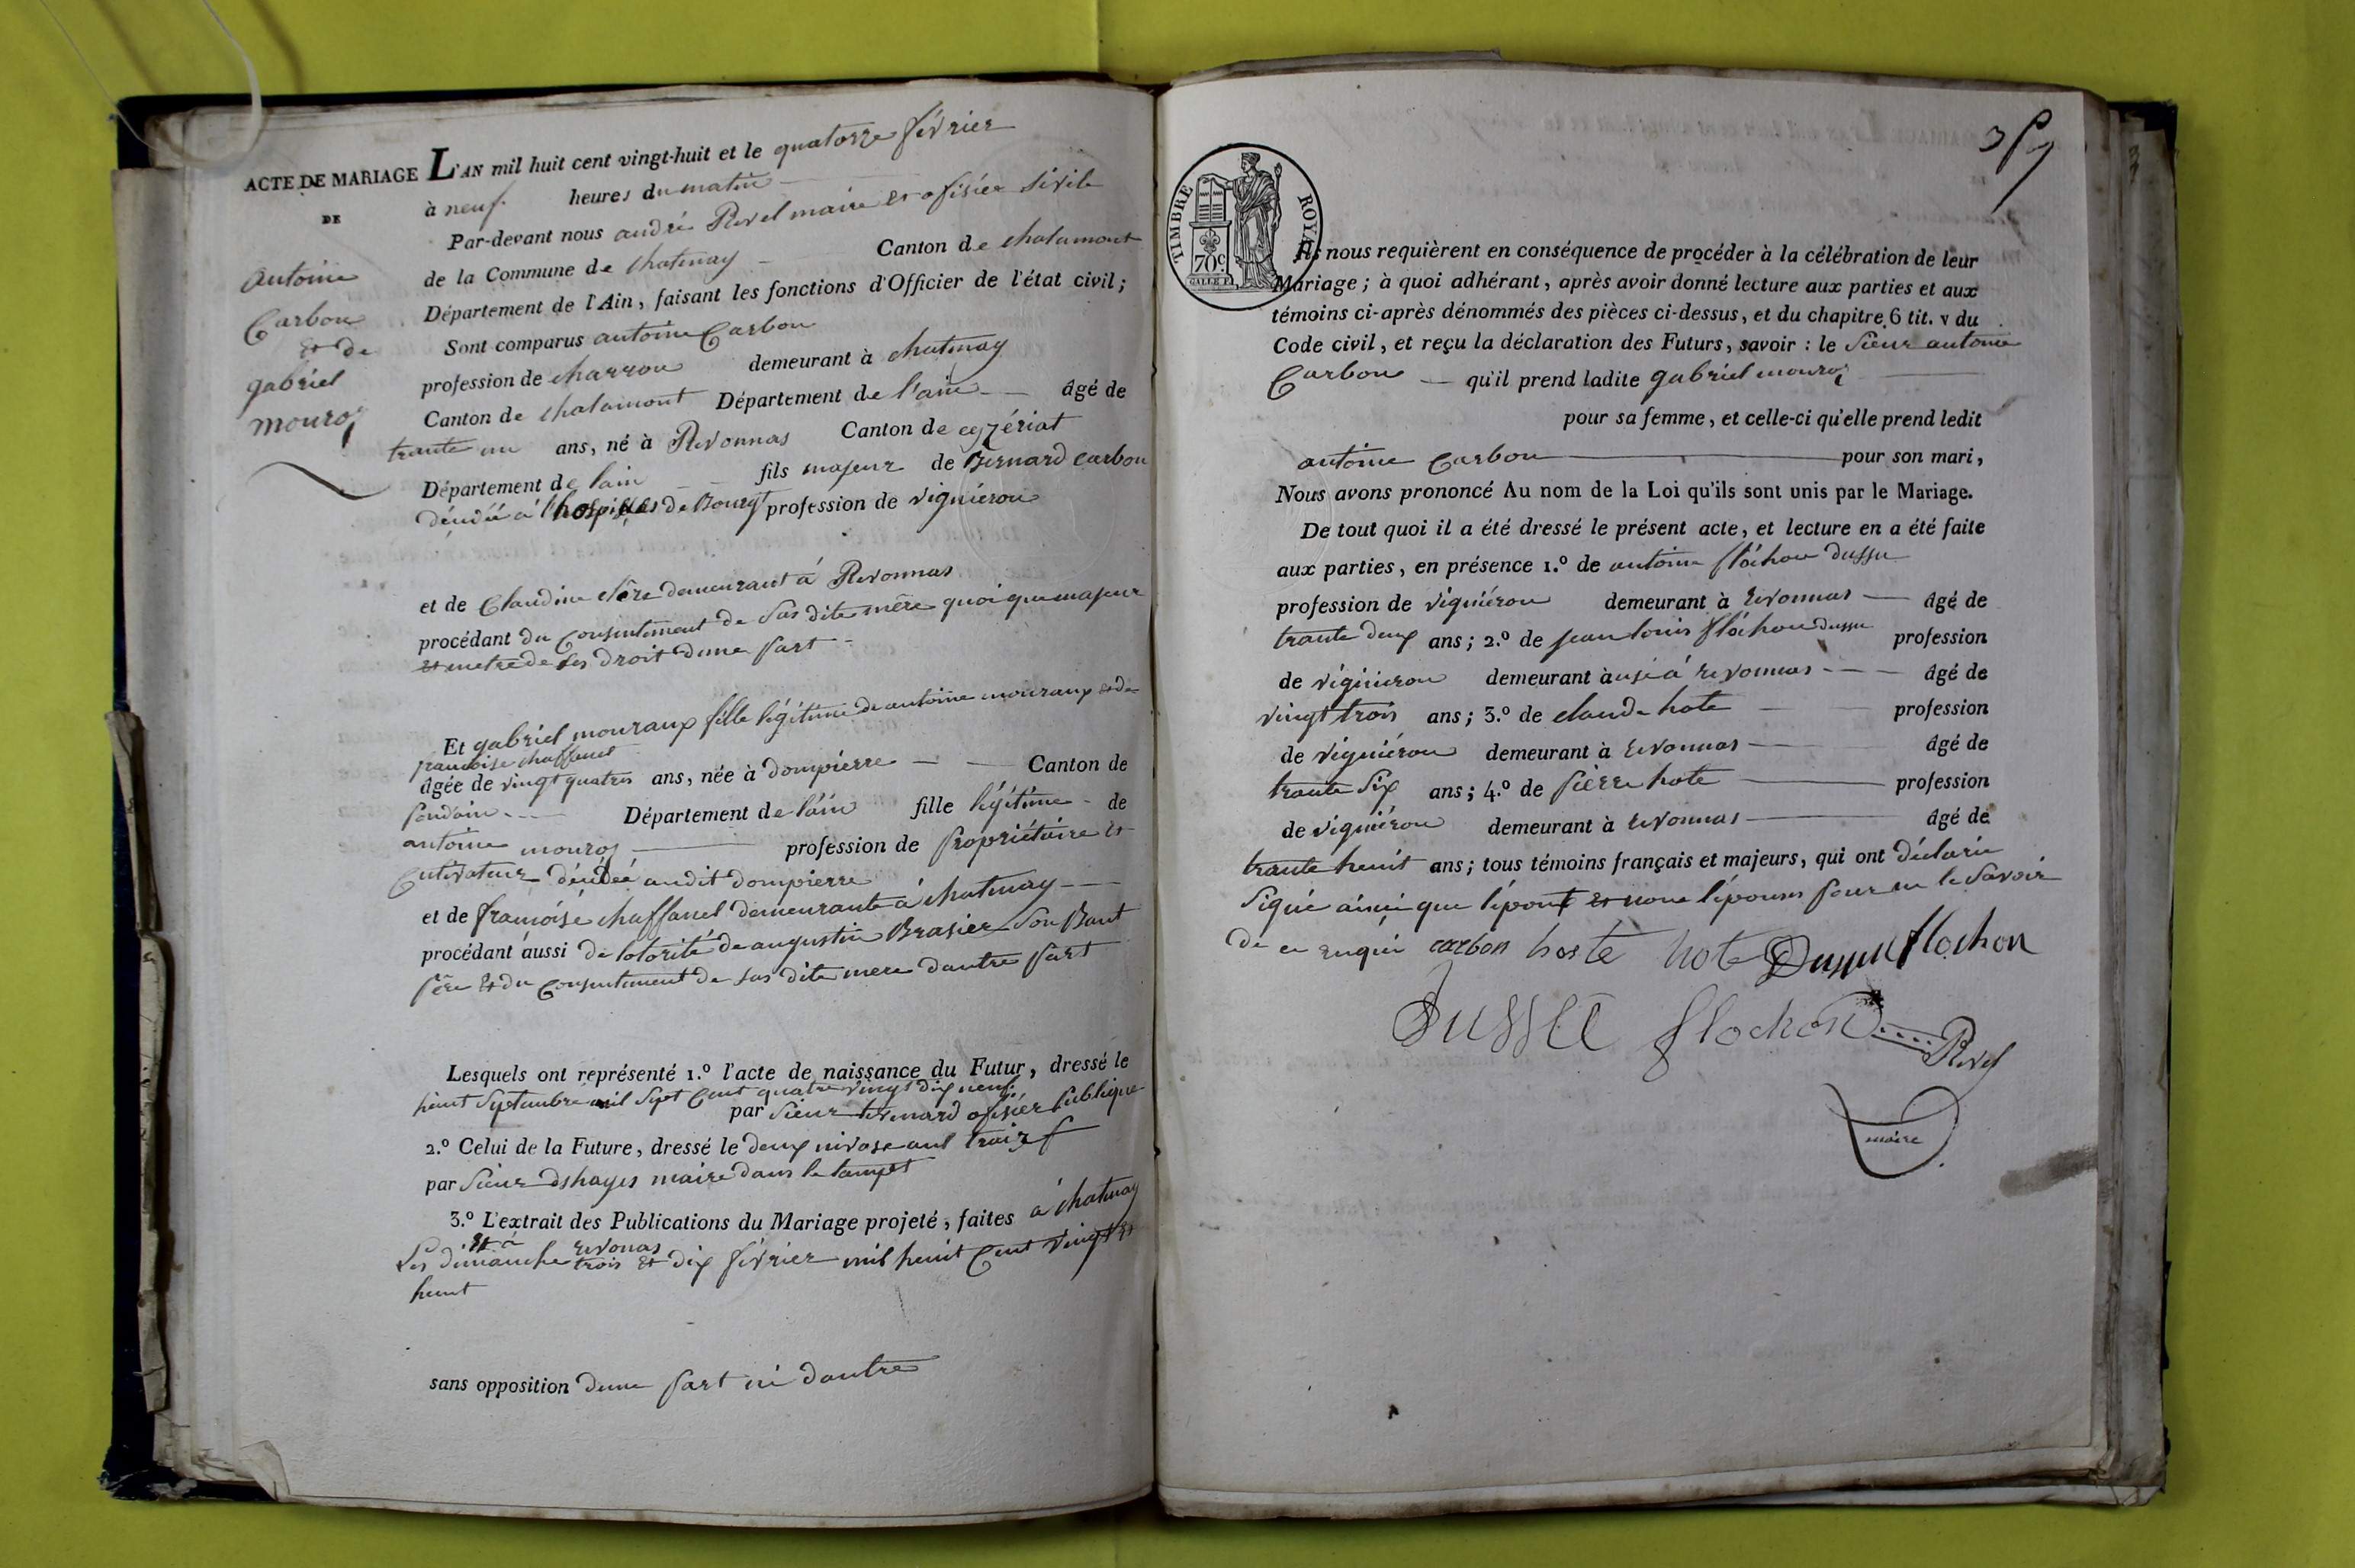 ACTE DE MARIAGE L'AN mil huit cent vingt-huit et le quatorze février
DE
à neuf heures du matin
Par-devant nous andré Revel maire et ofisier sivile
de la Commune de chatenay Canton de chalamont
Département de l'Ain, faisant les fonctions d'Officier de l'état civil;
antoine
Carbon
et de
gabriel
mouroz
Sont comparus antoine Carbon
profession de charron demeurant à chatenay
Canton de chalamont Département de l'ain âgé de
trante un ans, né à Revonnas Canton de ceyzériat
Département de lain fils majeur de Bernard Carbon
déudéé a l'hospisse de Bourg profession de vigniéron
et de Claudine demeurant á Revonnas
procédant du Consentement de sas dite mère quoi que majeur
et metre de ses droit dune part
Et gabriel mouraux fille légitime de antoine mouraux et de
francoise chaffanel
âgée de vingt quatres ans, née à dompierre Canton de
pondain Département de láin fille légitime de
antoine mouroz profession de propriétaire et
Cutivateur déudéé audit dompierre
et de françóise chaffanel demeurante á chatenay
procédant áussi de lotorité de augustin Brasier son Baut
père et du Consentement de sas dite mere dautre part
Lesquels ont représenté 1.º l'acte de naissance du Futur, dressé le
huit Septembre mil sept Cent quatre vingt dix neuf
par Sieur Bernard ofisiér publique
2.º Celui de la Future, dressé le deux nivose ant troiz
par Sieur dshayes maire dans le tampst
3.º L'extrait des Publications du Mariage projeté, faites á chatenay
Et á revonas
Les dimanche trois et dix février mil huit Cent vingt et
huit
sans opposition dune part ni dautre
3
TIMBRE ROYAL
70c
Ils nous requièrent en conséquence de procéder à la célébration de leur
Mariage; à quoi adhérant, après avoir donné lecture aux parties et aux
témoins ci-après dénommés des pièces ci-dessus, et du chapitre 6 tit. v du
Code civil, et reçu la déclaration des Futurs, savoir : le Sieur antoine
Carbon qu'il prend ladite gabriel mouroz
pour sa femme, et celle-ci qu'elle prend ledit
antoine Carbon pour son mari,
Nous avons prononcé Au nom de la Loi qu'ils sont unis par le Mariage.
De tout quoi il a été dressé le présent acte, et lecture en a été faite
aux parties, en présence 1.º de antoine flóchon dussu
profession de vigniéron demeurant à revonnas âgé de
trante deux ans; 2.º de jean louis flóchon dussu profession
de vigniéron demeurant à ausi á revonnas âgé de
vingt trois ans; 3.º de claude hote profession
de vigniéron demeurant à revonnas âgé de
trante six ans; 4.º de pierre hote profession
de vigniéron demeurant à revonnas âgé de
trante huit ans; tous témoins français et majeurs, qui ont déclaré
Signé ainsi que lépout et none lépouse pour ne le savoir
de ce enquie carbon hoste hote Dussu flochon
Dussu flochon
Revel
maire